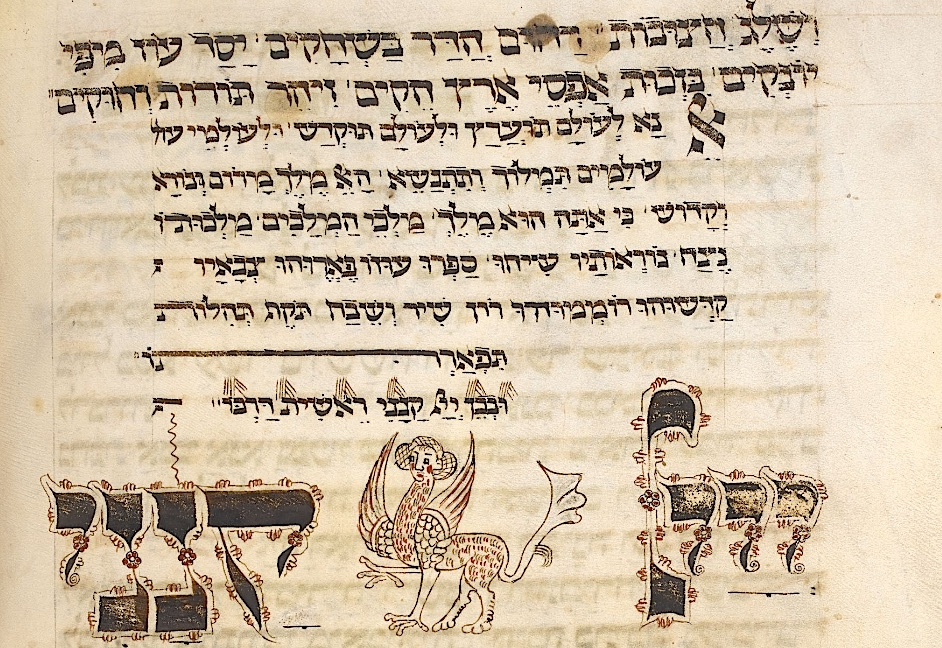 ושלג הדר בשחקים יסר עוד מיפי
אפסי ארץ הקים ויהר תורות וחוקים
אנא לעולם תוערץ ולעולם תוקדש ולעולמי עול
עולמים תמלוך ותתנשא האל מלך מרום ונורא
וקדוש כי אתה הוא מלך מלכי המלכים מלכותו
נצח נוראותיו שיחו ספרו עוזו פארוהו צבאיו
קדשוהו רוממוהו רון שיר ושבח תקף תהלות
תפארתו
ובכן יי קנני ראשית דרכו